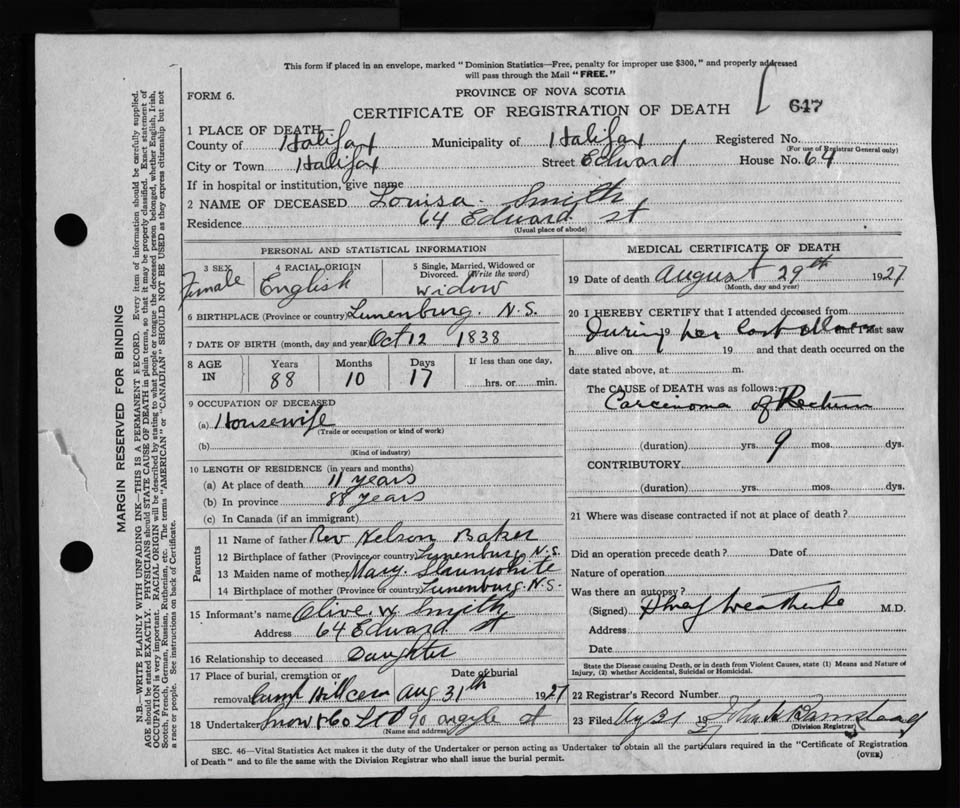 This form if placed in an envelope, marked "Dominion Statistics—Free, penalty for improper use $300," and properly addressed
will pass through the Mail "FREE."
FORM 6.
PROVINCE OF NOVA SCOTIA
CERTIFICATE OF REGISTRATION OF DEATH
647
1 PLACE OF DEATH—
County of Halifax Municipality of Halifax Registered No.
(For use of Registrar General only)
City or Town Halifax Street Edward House No. 64
If in hospital or institution, give name
2 NAME OF DECEASED Louisa Smith
Residence 64 Edward St
(Usual place of abode)
PERSONAL AND STATISTICAL INFORMATION
3 SEX 4 RACIAL ORIGIN 5 Single, Married, Widowed or
Divorced. (Write the word)
Female English Widow
6 BIRTHPLACE (Province or country) Lunenburg. N.S.
7 DATE OF BIRTH (month, day and year) Oct 12 1838
8 AGE IN Years Months Days If less than one day,
88 10 17 hrs. or min.
9 OCCUPATION OF DECEASED
(a) Housewife
(Trade or occupation or kind of work)
(b)
(Kind of industry)
10 LENGTH OF RESIDENCE (in years and months)
(a) At place of death 11 years
(b) In province 88 years
(c) In Canada (if an immigrant)
Parents
11 Name of father Rev Nelson Baker
12 Birthplace of father (Province or country) Lunenburg N.S.
13 Maiden name of mother Mary
14 Birthplace of mother (Province or country) Lunenburg N.S.
15 Informant's name Olive W Smith
Address 64 Edward St
16 Relationship to deceased Daughter
17 Place of burial, cremation or Date of burial
removal Camp Hill Cem Aug 31th 1927
18 Undertaker Snow & Co Ltd 90 Argyle St
(Name and address)
MEDICAL CERTIFICATE OF DEATH
19 Date of death August 29th 1927
(Month, day and year)
20 I HEREBY CERTIFY that I attended deceased from
During her last illness that I last saw
h alive on 19 and that death occurred on the
date stated above, at m.
The CAUSE of DEATH was as follows:
Carcinoma of Rectum
(duration) yrs. 9 mos. dys.
CONTRIBUTORY
(duration) yrs. mos. dys.
21 Where was disease contracted if not at place of death?
Did an operation precede death? Date of
Nature of operation
Was there an autopsy?
(Signed) M.D.
Address
Date
State the Disease causing Death, or in death from Violent Causes, state (1) Means and Nature of
Injury, (2) whether Accidental, Suicidal or Homicidal.
22 Registrar's Record Number
23 Filed 31 1927
(Division Registrar)
SEC. 46—Vital Statistics Act makes it the duty of the Undertaker or person acting as Undertaker to obtain all the particulars required in the "Certificate of Registration
of Death" and to file the same with the Division Registrar who shall issue the burial permit.
(OVER)
MARGIN RESERVED FOR BINDING
N.B.—WRITE PLAINLY WITH UNFADING INK—THIS IS A PERMANENT RECORD. Every item of information should be carefully supplied.
AGE should be stated EXACTLY. PHYSICIANS should STATE CAUSE OF DEATH in plain terms, so that it may be properly classified. Exact statement of
OCCUPATION is very important. RACIAL ORIGIN will be described by stating to what people or tongue the deceased person belonged, whether English, Irish,
Scotch, French, German, Russian, Ruthenian, etc. The terms "AMERICAN" or "CANADIAN" SHOULD NOT BE USED as they express citizenship but not
a race or people. See instructions on back of Certificate.